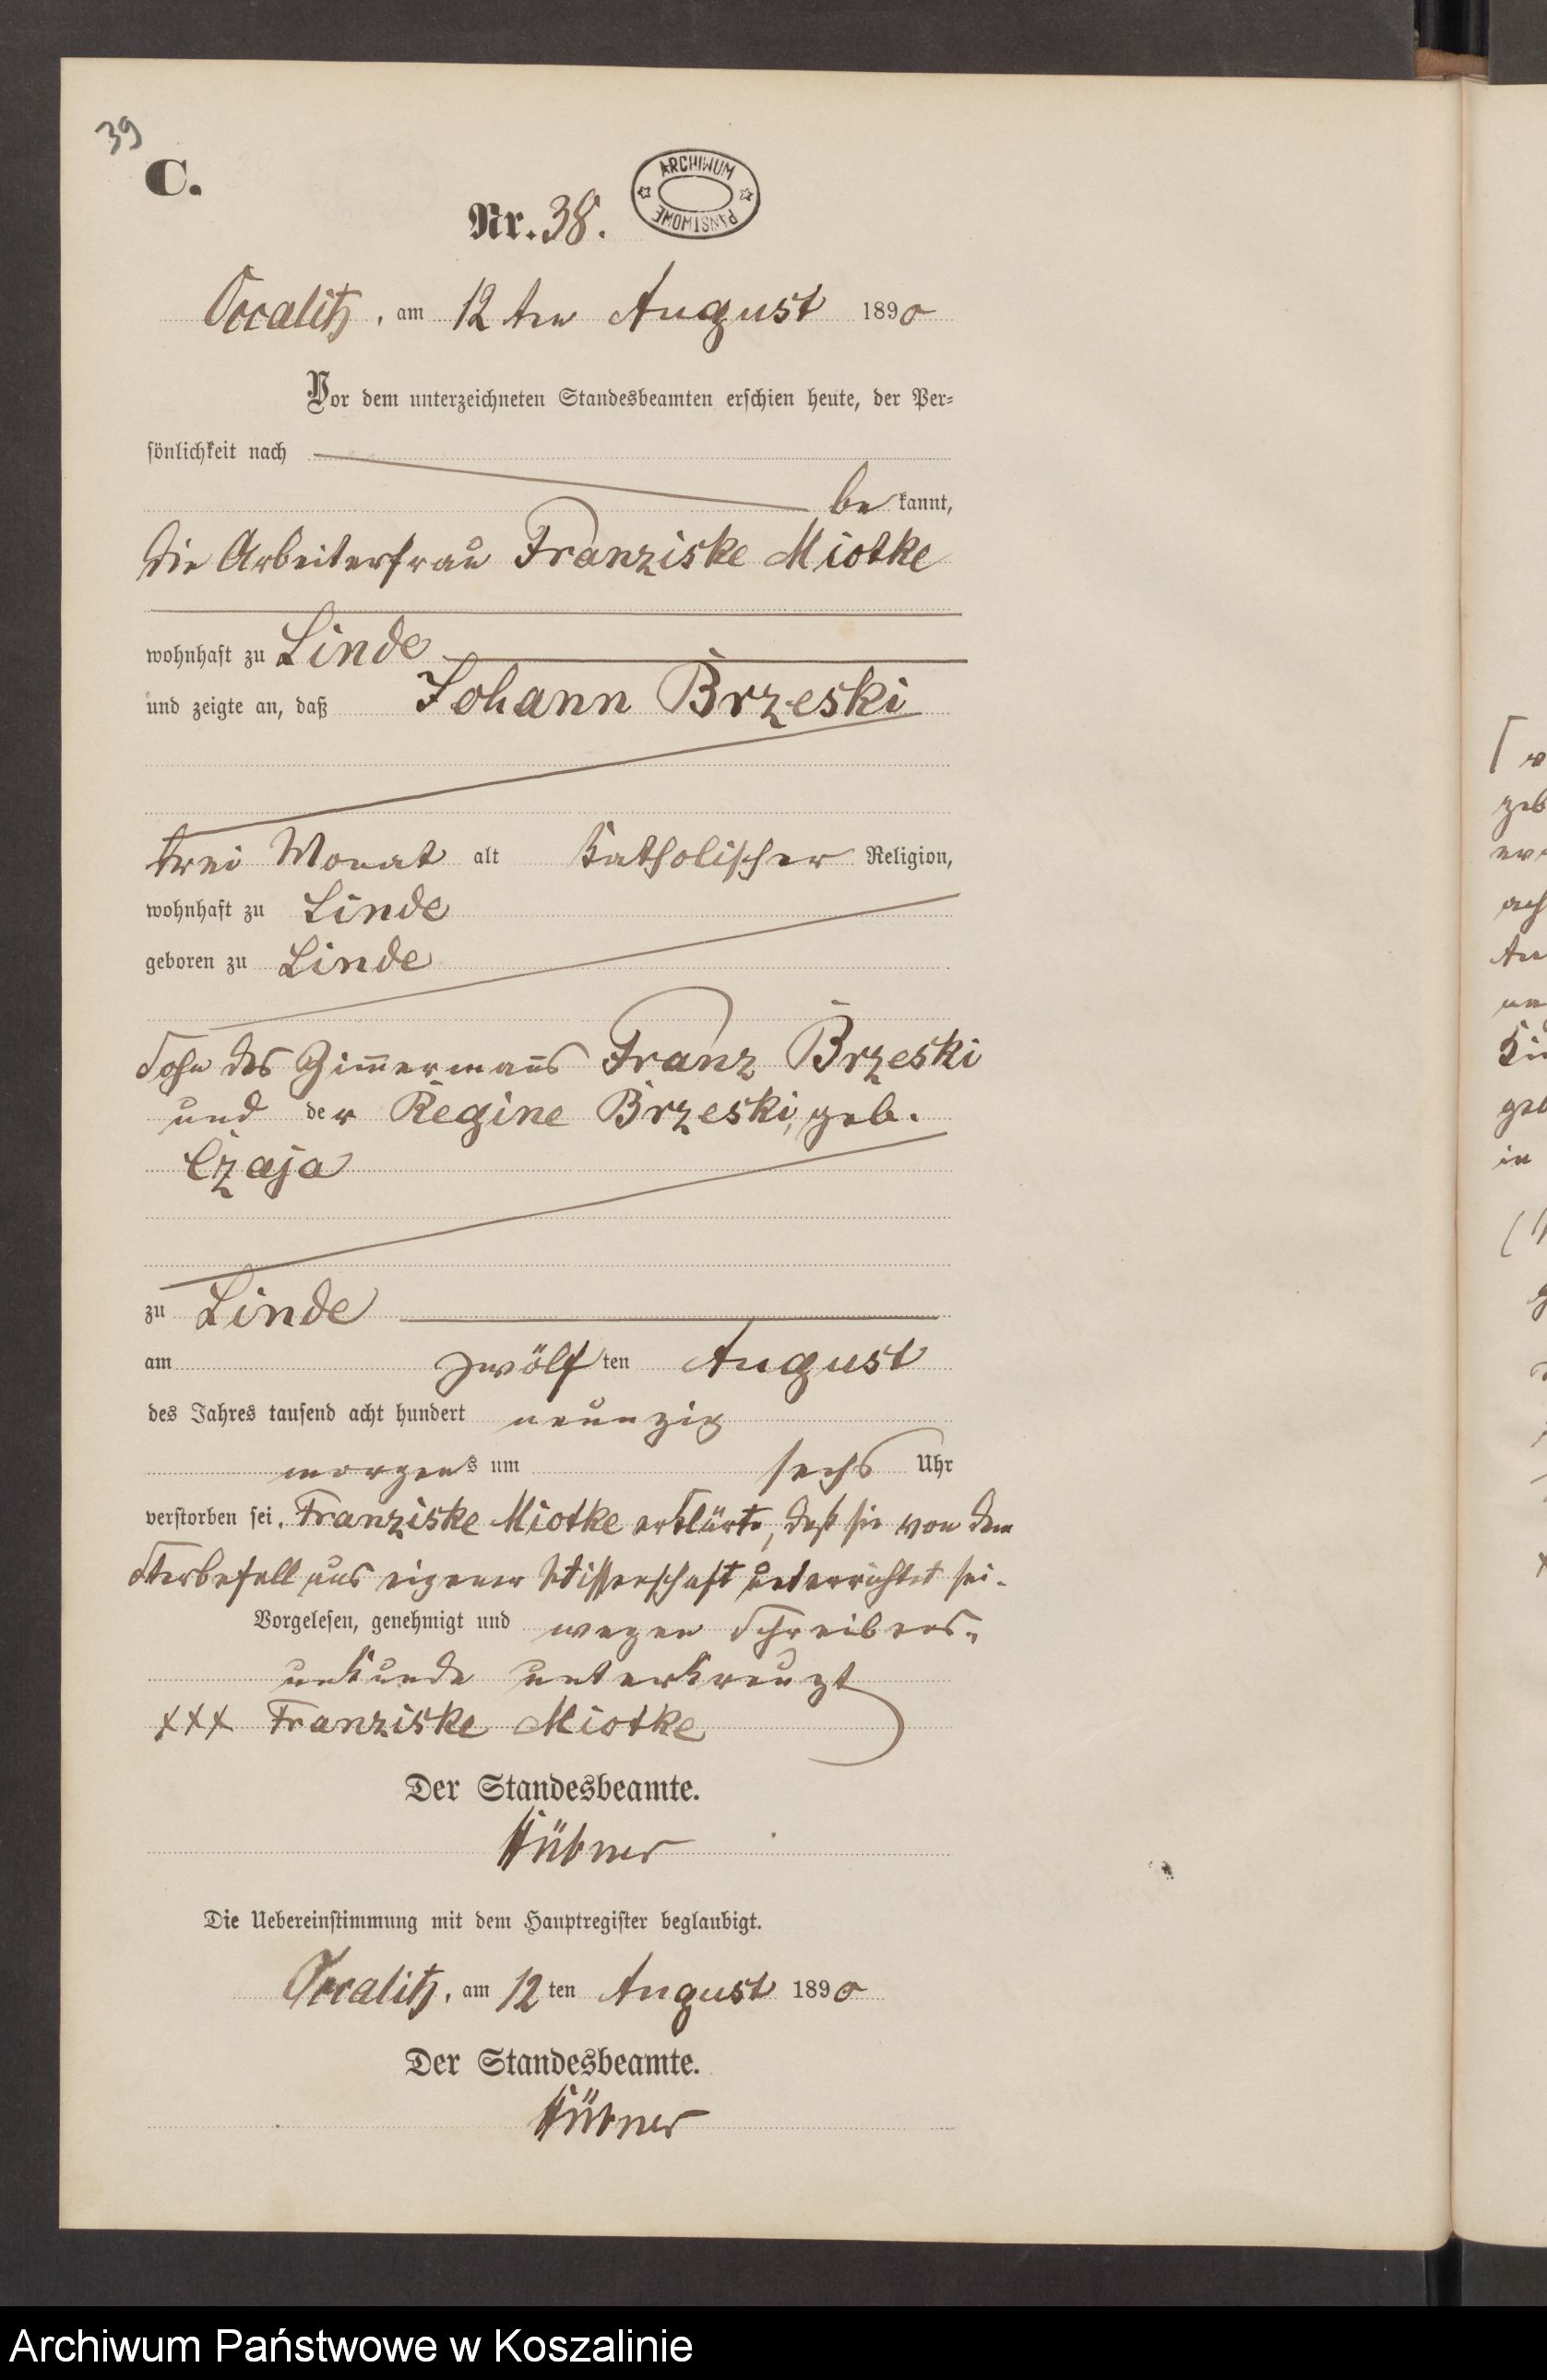 39
C.
ARCHIWUM PAŃSTWOWE
Nr. 38.
Occalitz, am 12 ten August 1890
Vor dem unterzeichneten Standesbeamten erschien heute, der Per=
sönlichkeit nach
bekannt,
die Arbeiterfrau Franziske Miotke
wohnhaft zu Linde
und zeigte an, daß Johann Brzeski
drei Monat alt Katholischer Religion,
wohnhaft zu Linde
geboren zu Linde
Sohn des Zimmermanns Franz Brzeski
und der Regine Brzeski, geb.
Czaja
zu Linde
am zwölf ten August
des Jahres tausend acht hundert neunzig
morgens um sechs Uhr
verstorben sei. Franziske Miotke erklärte, daß sie von dem
Sterbefall aus eigener Wissenschaft unterrichtet sei.
Vorgelesen, genehmigt und wegen Schreibens-
unkunde unterkreuzt
XXX Franziske Miotke
Der Standesbeamte.
Hübner
Die Uebereinstimmung mit dem Hauptregister beglaubigt.
Occalitz, am 12 ten August 1890
Der Standesbeamte.
Hübner
Archiwum Państwowe w Koszalinie